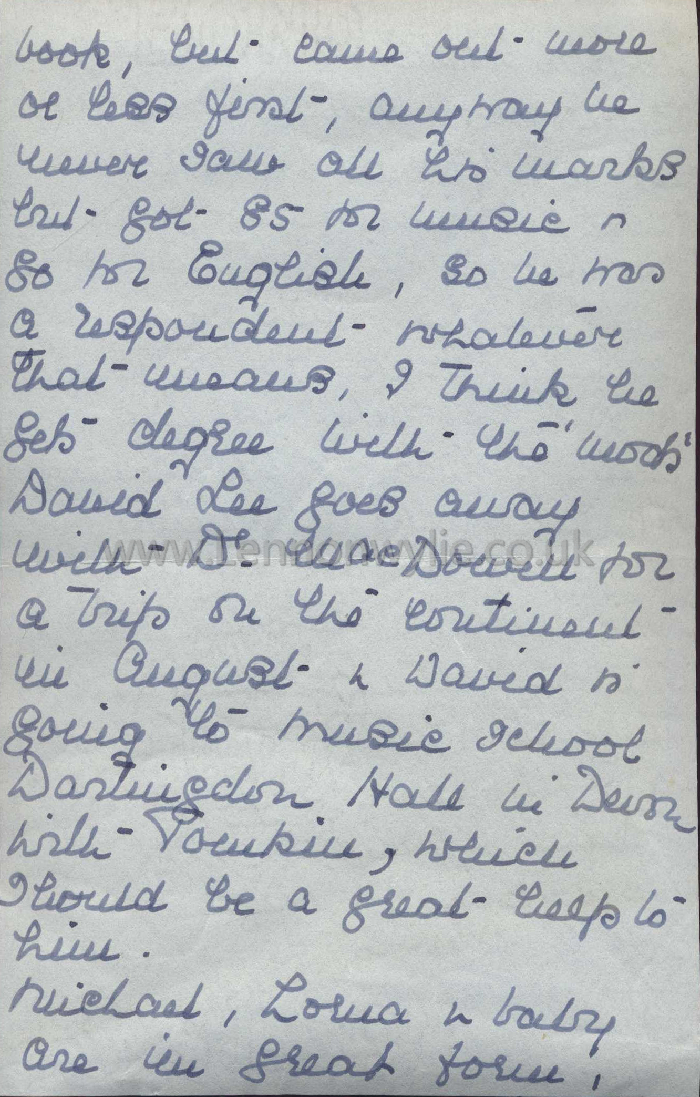 book, but came out more
or less first, anyway he
never saw all his marks
but got 85 for music n
80 for English, so he was
a respondent whatever
that means, I think he
gets degree with the 'mods'
David Lee goes away
www.Lennonwylie.co.uk
with Dr. MacDowell for
a trip on the continent
in August n David is
going to music School
Dartingdon Hall in Devon
with Pomkin, which
should be a great help to
him.
Michael, Lorna n baby
are in great form,